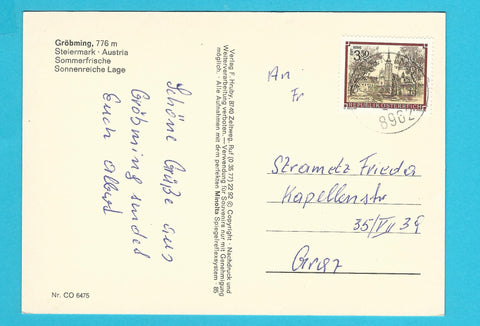 Gröbming, 776 m
Steiermark · Austria
Sommerfrische
Sonnenreiche Lage
Schöne Grüße aus
Gröbming sendet
Euch Albert
Nr. CO 6475
Verlag F. Hruby, 8740 Zeltweg, Ruf (0 35 77) 22 92 © Copyright · Nachdruck und
Weiterverarbeitung verboten. — Verwendung für Souvenirs nur mit Genehmigung
möglich. · Alle Aufnahmen mit dem perfekten Minolta Spiegelreflexsystem · 85
An
Fr
3.50
REPUBLIK ÖSTERREICH
8962
Strametz Frieda
Kapellenstr
35/VII 39
Graz